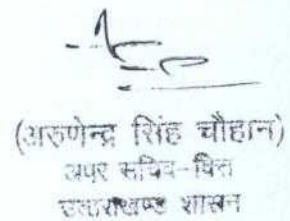 (अरुणेन्द्र सिंह चौहान)
अपर सचिव-वित्त
उत्तराखण्ड शासन